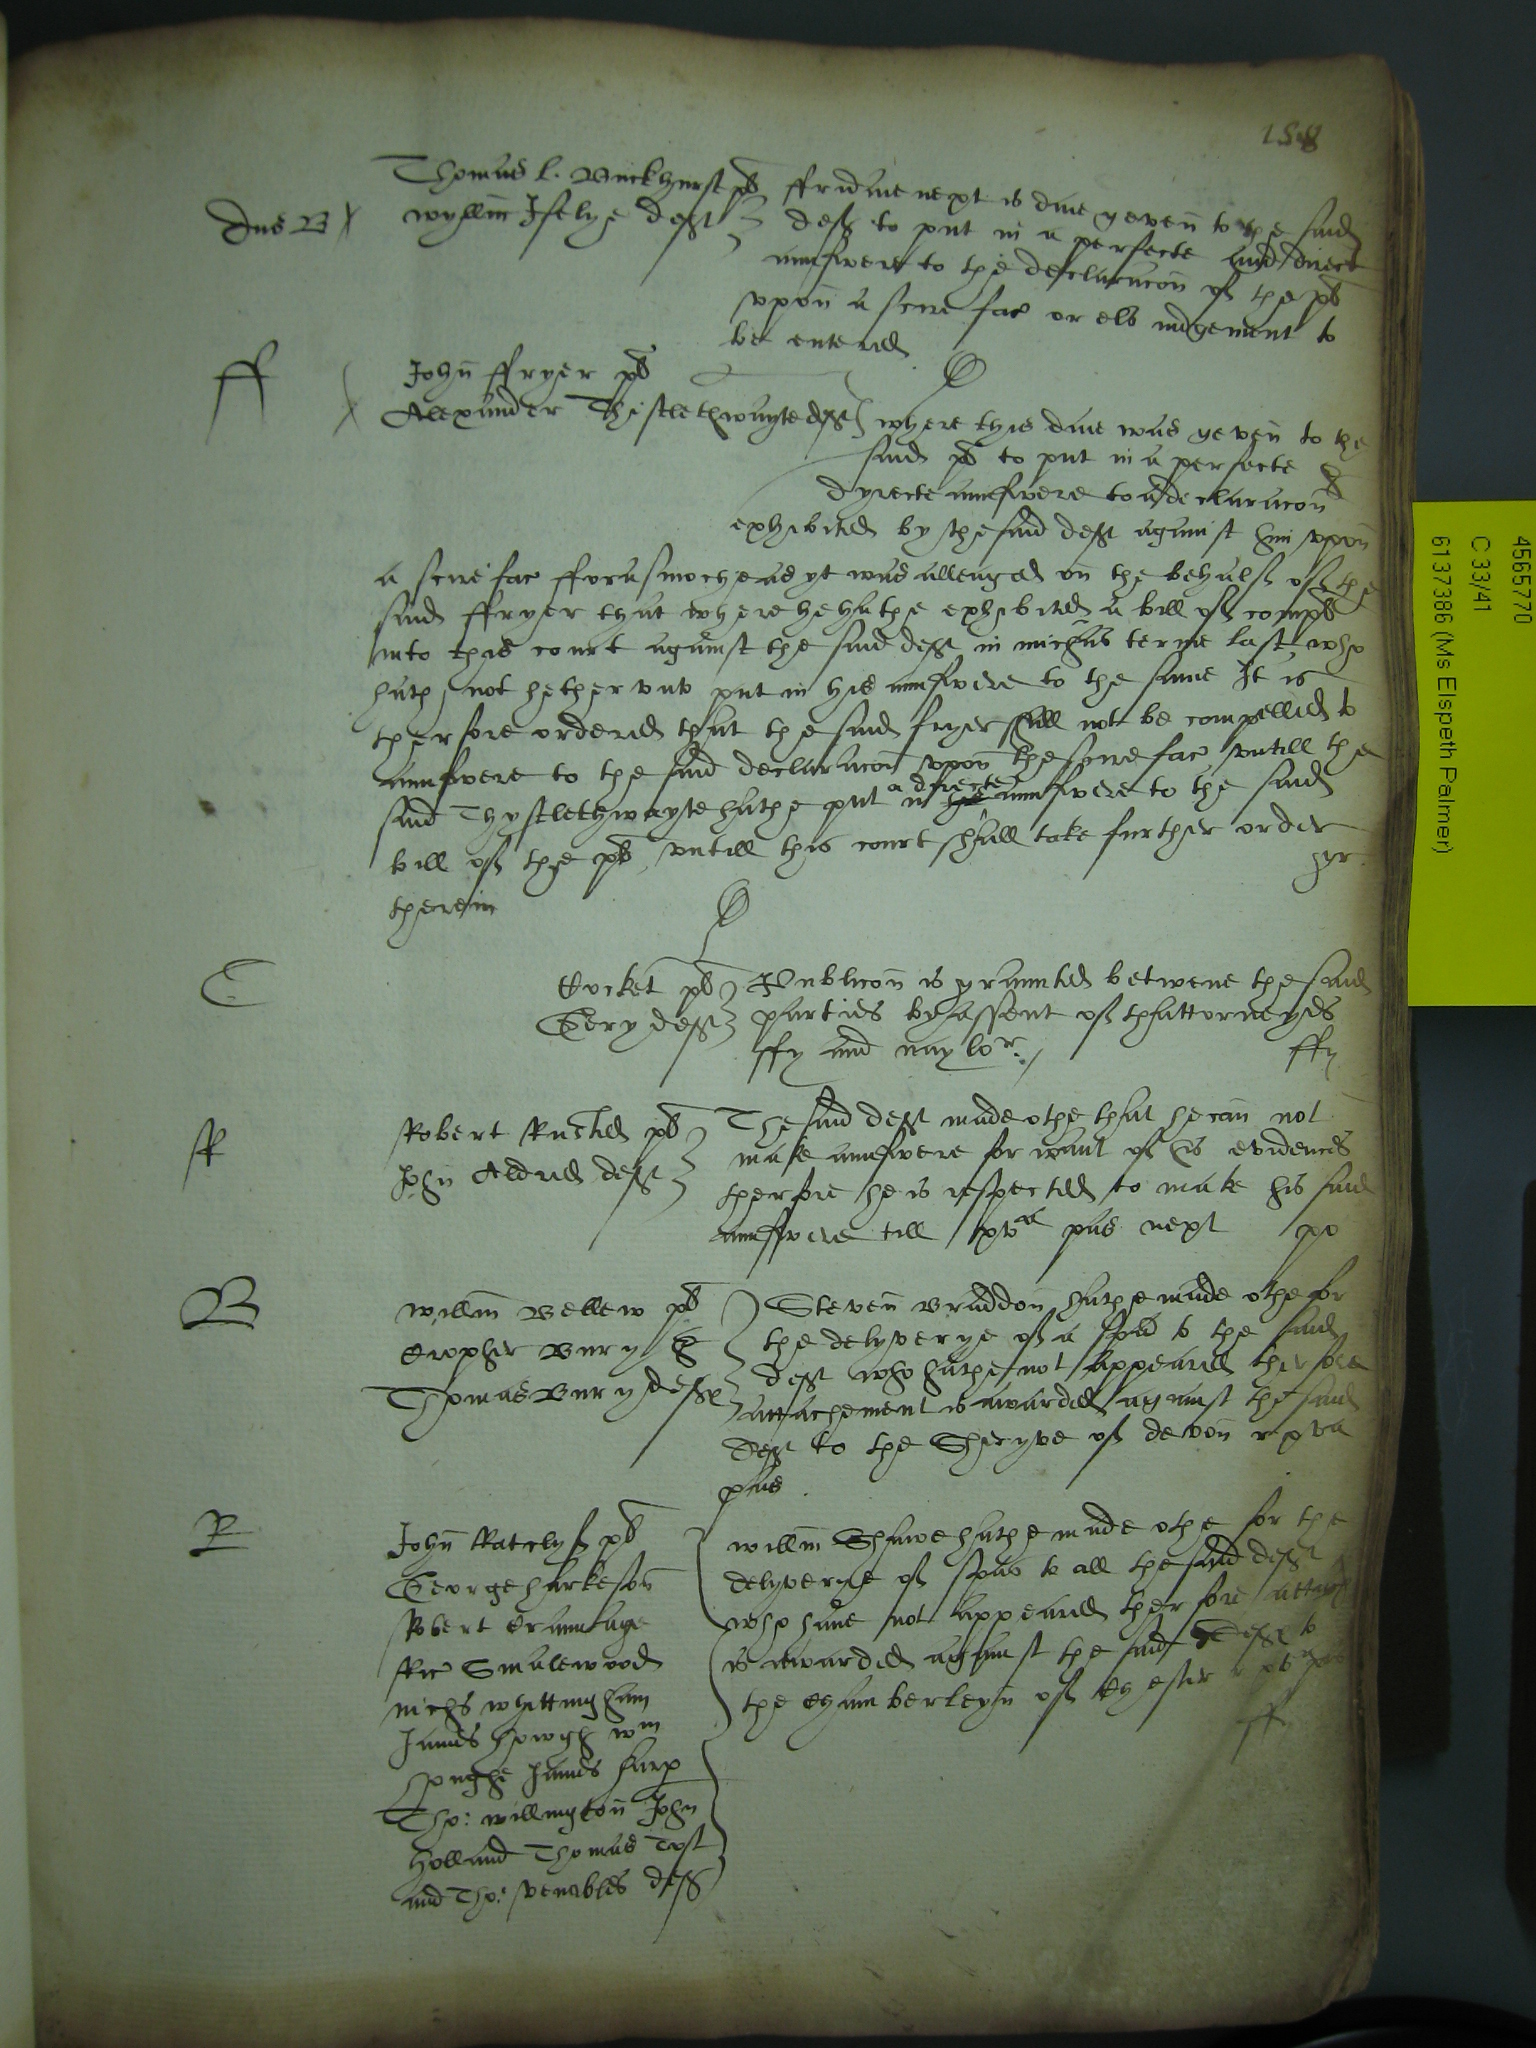 158
Dns B
Thomas l. Buckhurst pl
Wyllm Iselye deft
ffridaie next is daie geven to the said
deft to put in a perfecte and direct
aunswere to the declaracon of the pl
upon a scire fac or els iudgement to
be entered
ff
John ffryer pl
Alexander Thistlethwayte deft
where this daie was geven to the
said pl to put in a perfecte &
dyrecte aunswere to a declaracon
exhibited by the said deft against him upon
a scire fac fforasmoche as yt was alleaged on the behalf of the
said ffryer that where he hathe exhibited a bill of compl
into this court against the said deft in michas terme last who
hath not hetherunto put in his aunswere to the same It is
therfore ordered that the said fryer shall not be compelled to
aunswere to the said declaracon upon the scire fac untill the
said Thystlethwayte hathe put in a directe aunswere to the said
bill of the pl, untill this court shall take further order
therein
C
Cocket pl
Gery deft
Publicon is graunted betwene the said
parties by assent of thattorneyes
ffy and naylor
ffy
R
Robert Rusted pl
John Aldred deft
The said deft made othe that he can not
make aunswere for want of his evidences
therfore he is respected to make his said
aunswere till xva pas next
po
B
Willm Bellew pl
Cropher Bury &
Thomas Bury deftes
Steven Braddon hathe made othe for
the delyverye of a spa to the said
deft who hathe not appeared therfore
attachement is awarded against the said
deft to the Sheryve of devon r xva
pas
R
John Ratclyf pl
George harkeson
Robert
Ric Smalewood
nichs whittingham
James howgh wm
houghe James harp
Tho: willington John
Holland Thomas Tost
and Tho: venables deft
willm Shawe hathe made othe for the
delyverye of spas to all the said deft
who have not appeared therfore attach
is awarded against the said deft to
the chamberleyn of chester r
ffy
4565770
C 33/41
6137386 (Ms Elspeth Palmer)